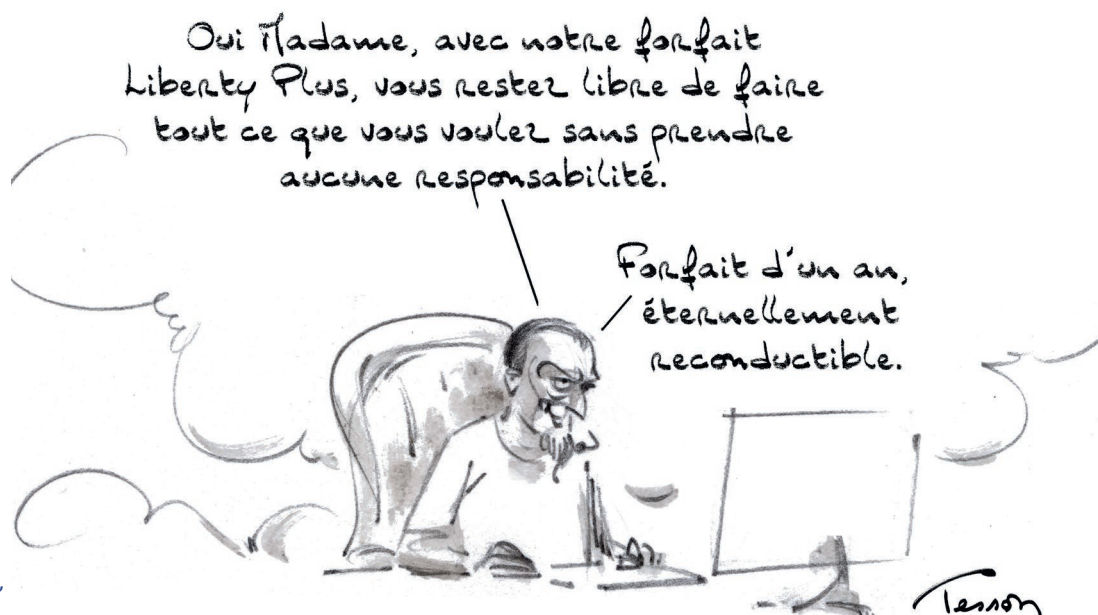 Oui Madame, avec notre forfait
Liberty Plus, vous restez libre de faire
tout ce que vous voulez sans prendre
aucune responsabilité.
Forfait d'un an,
éternellement
reconductible.
Tesson